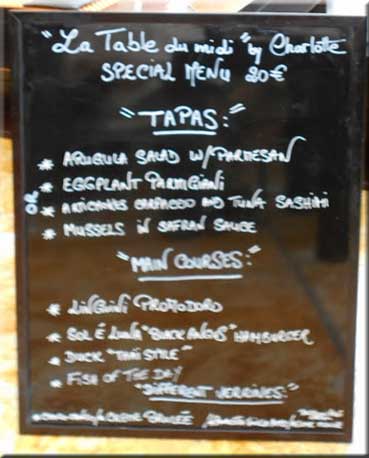 "La Table du midi" by Charlotte
SPECIAL MENU 20€
"TAPAS:"
* ARUGULA SALAD W/PARMESAN
* EGGPLANT PARMIGIANI
OR
* ARTICHOKES CARPACCIO AND TUNA SASHIMI
* MUSSELS IN SAFRAN SAUCE
"MAIN COURSES:"
* LINGUINI PROMODORO
* SOL É LUNA "BLACK ANGUS" HAMBURGER
* DUCK "THAI STYLE"
* FISH OF THE DAY
"DIFFERENT VERRINES:"
CREME BRULÉE